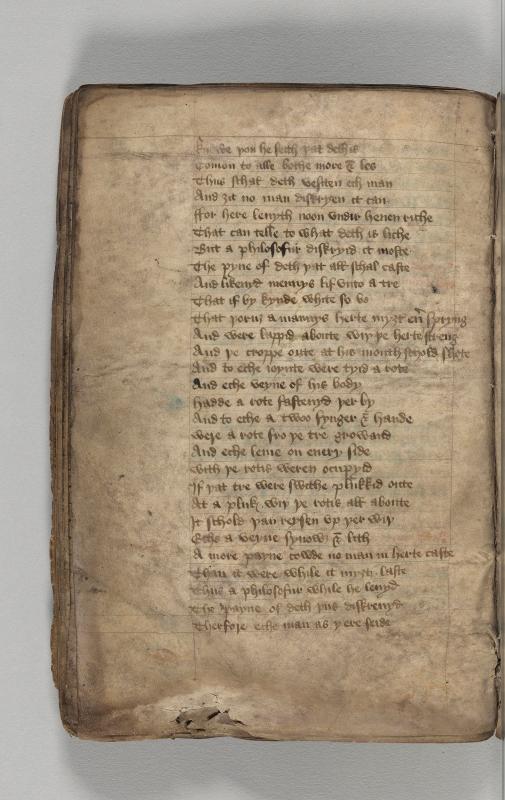 we you he seith þat deth is
Comon to alle bothe more & les
Thus schal deth vesiten ech man
And ȝit no man diskryen it can
ffor here leuyth noon vndir heuen riche
That can telle to what deth is liche
But a philosofur diskryid it moste
The pyne of deth þat all schal taste
And likenyd mennys lif vnto a tre
That if by kynde white so be
That þoruȝ a mannys herte myȝt spryng
And were lappid aboute wiþ þe herte streng
And þe croppe oute at his mouth schold schete
And to eche ioynte were tyid a rote
And eche veyne of his body
Hadde a rote fastenyd þer by
And to eche a too fynger & hande
Were a rote fro þe tre growand
And eche leme on euery side
With þe rotis weren ocupyid
If þat tre were swithe plukkid oute
At a pluk wiþ þe rotis all aboute
It schold þan reysen vp þer wiþ
Eche a veyne synow & lith
A more payne cowde no man in herte caste
Than it were while it myȝt laste
Thus a philosofur while he leuyd
The payne of deth þus diskreuyd
Therfore eche man as y ere seide